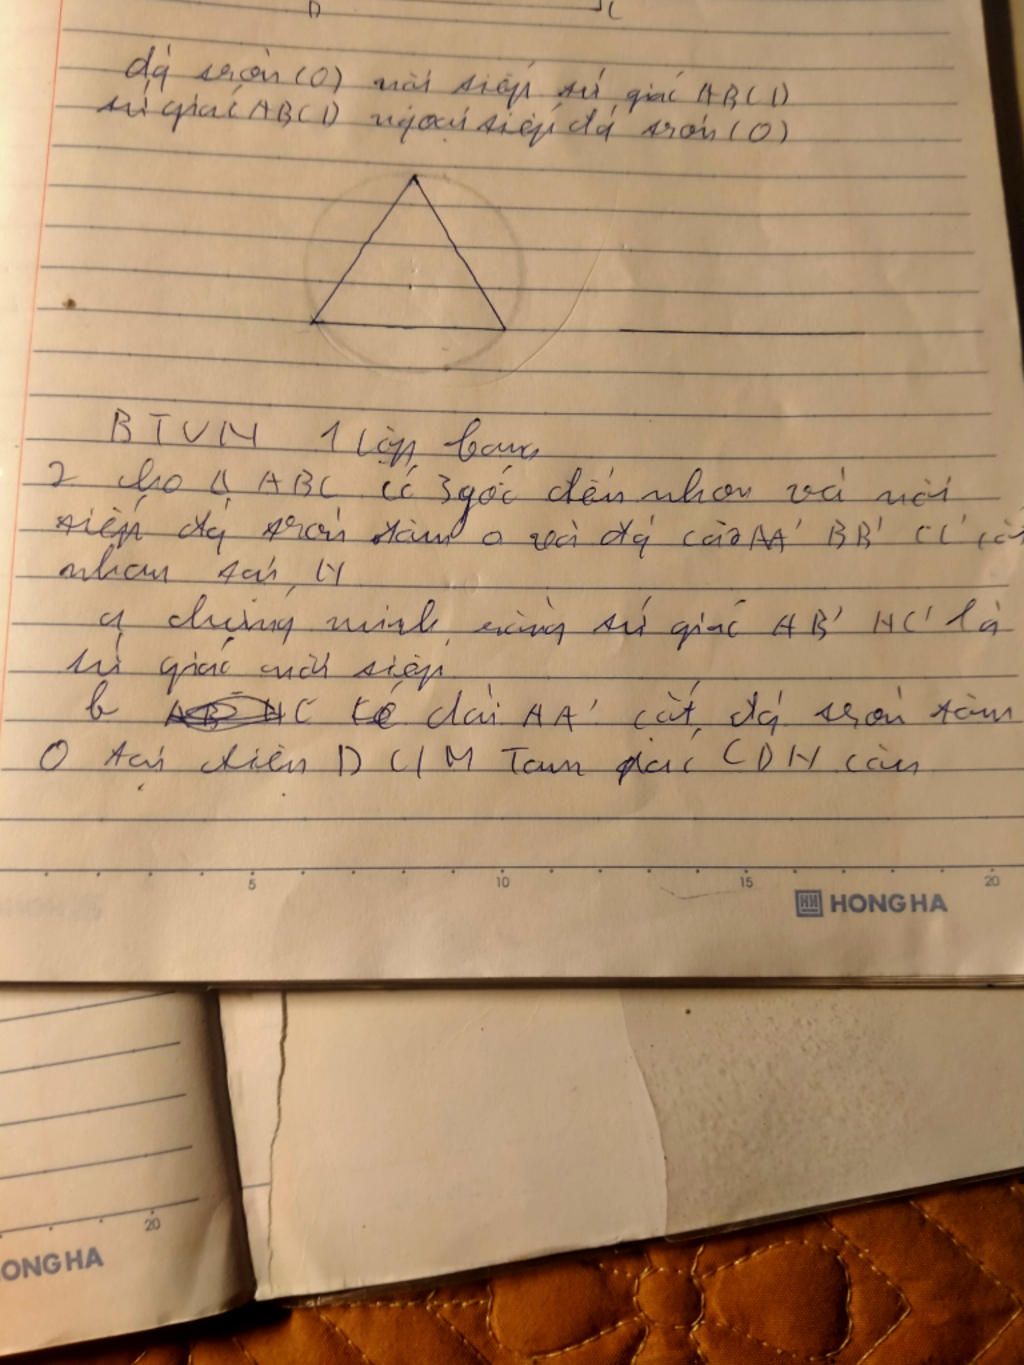 đg tròn (O) nội tiếp tứ giác ABCD
tứ giác ABCD ngoại tiếp đg tròn (O)
BTVN 1 lập bảng
2 cho Δ ABC có 3 góc đến nhọn và nội
tiếp đg tròn tâm O và đg cao AA' BB' CC' cắt
nhau tại H
a, chứng minh rằng tứ giác AB'HC' là
tứ giác nội tiếp
b kéo dài AA' cắt đg tròn tâm
O tại điểm D C/M Tam giác CDH cân
5 10 15 20
HONG HA
20
ONG HA